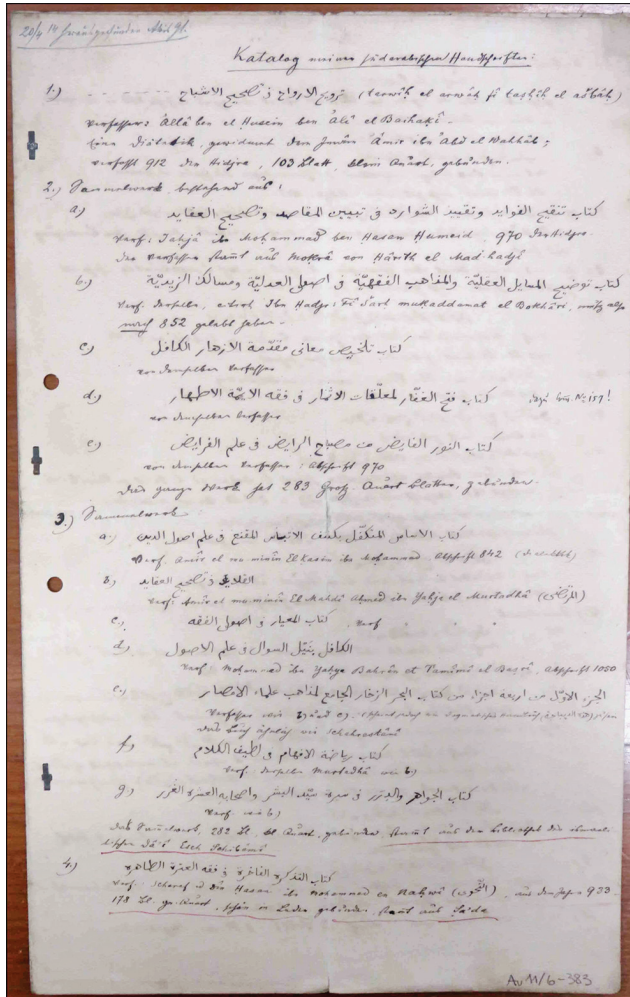 Katalog meiner südarabischen Handschriften:
1.) ترويح الارواح فى تصحيح الاشباح (terwîḥ el arwâḥ fî taṣḥîḥ el ašbâḥ)
Verfasser: ʿAllâ ben el Husein ben ʿAlâ el
Eine Diätetik, gewidmet dem Imâm ʿÂmir ibn ʿAbd el Wahhâb;
verfaßt 912 der Hidjra, 103 Blatt, klein Quart, gebunden.
2.) Sammelwerk bestehend aus:
a) كتاب تنقيح الفوايد وتقييد الشوارد فى تبيين المقاصد وتصحيح العقايد
Verf: Jahjâ ibn Mohammad ben Hasan Humeid, 970 der Hidjra.
Der Verfasser stammt aus von Hârith el Madhadjî
b) كتاب توضيح المسايل العقليّة والمذاهب الفقهيّة فى اصول العدليّة ومسالك الزيديّة
Verf. derselbe, Ibn Hadjr: Fî šarḥ mukaddamat el Bokhârî, muß also
nach 852 gelebt haben.
c) كتاب تلخيص معانى مقدّمة الازهار الكافل
von demselben Verfasser
d) كتاب فتح الغفّار لمعلّقات الاثمار فى فقه الايمّة الاطهار No 157!
von demselben Verfasser
e) كتاب النور الفايض من مصباح الرايض فى علم الفرايض
von demselben Verfasser: Abschrift 970
Das ganze Werk hat 283 groß Quart blätter, gebunden.
3.) Sammelwerk
a.) كتاب الاساس المتكفّل بكشف الالتباس المقنع فى علم اصول الدين
Verf. Amîr el mu minîn El Kasim ibn Mohammed. Abschrift 842
b) القلايد فى تصحيح العقايد
Verf: Amîr el mu minîn El Mahdi Ahmed ibn Yahje el Murtadhâ (المرتضى)
c) كتاب المعيار فى اصول الفقه Verf " " "
d) الكافل بنيل السوال فى علم الاصول
Verf: Mohammed ibn Yahye Bahrân et Tamîmî el Basrî, Abschrift 1050
e.) الجزء الاوّل من اربعة اجزاء من كتاب البحر الزخار الجامع لمذاهب علماء الامصار
Verfasser wie
Das Buch ähnlich wie
f) كتاب رياضة الافهام فى لطيف الكلام
Verf. derselbe Murtadhâ wie b)
g) كتاب الجواهر والدرر فى سيرة سيّد البشر واصحابه العترة الغرر
Verf wie b)
Das Sammelwerk, 282 Bl. kl Quart, gebunden, stammt aus der Bibliothek des
4.) كتاب التذكرة الفاخرة فى فقه العترة الطاهرة
Verf: Scheref ed din Hasan ibn Mohammed en Nahwî (النحوى), aus dem Jahre 933.
178 Bl. gr. Quart, schön in Leder gebunden, stammt aus Saʿda
AvM/6-383